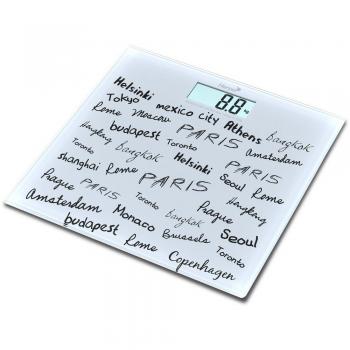 8.8
Helsinki mexico city Athens
Tokyo Rome Moscow PARIS Bangkok
Hongkong budapest Toronto Amsterdam
Toronto Bangkok Helsinki PARIS
shanghai Rome Seoul Rome
Prague PARIS PARIS Hongkong
Amsterdam Monaco Bangkok Prague Toronto
budapest Rome Brussels Seoul
Copenhagen Toronto